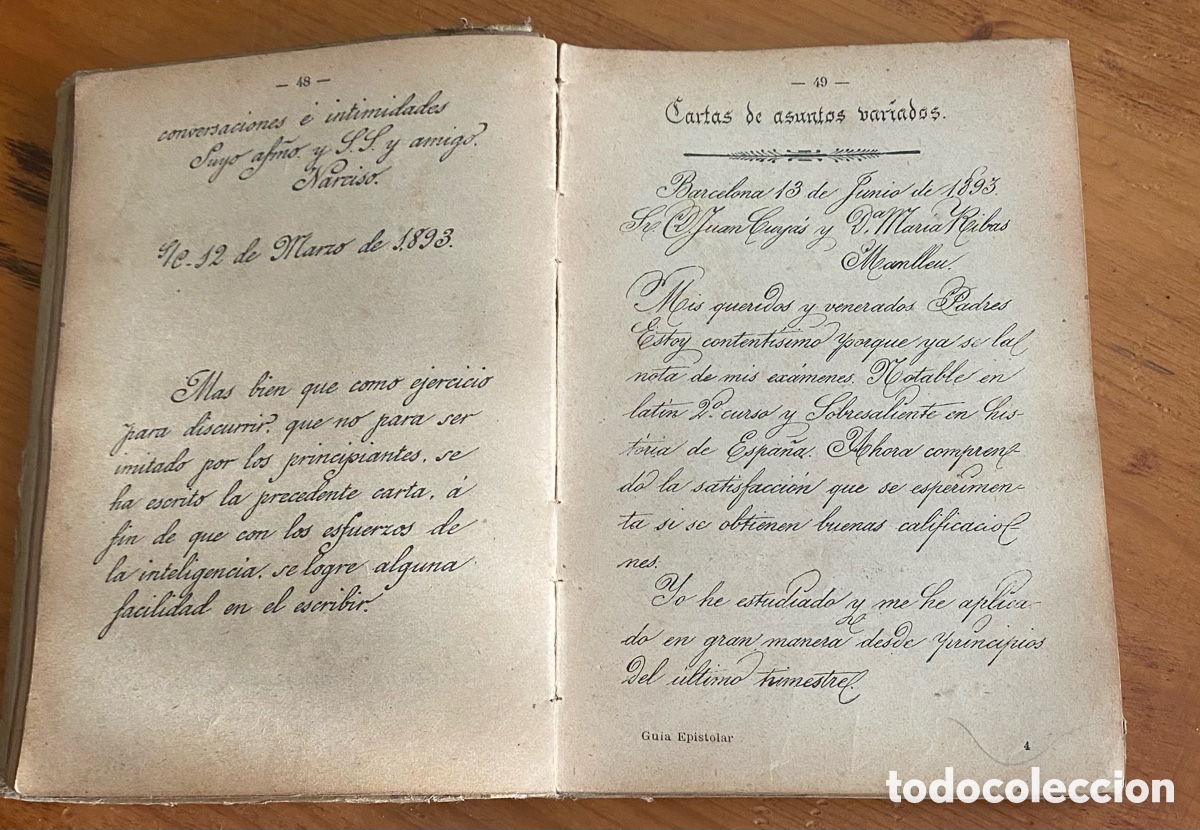 — 48 —
conversaciones é intimidades
Suyo afmo. y S.S. y amigo.
Narciso.
S/c. 12 de Marzo de 1893.
Mas bien que como ejercicio
para discurrir, que no para ser
imitado por los principiantes, se
ha escrito la precedente carta, á
fin de que con los esfuerzos de
la inteligencia, se logre alguna
facilidad en el escribir.
— 49 —
Cartas de asuntos variados.
Barcelona 13 de Junio de 1893.
Sr. D. Juan Cuyás y Dª María Ribas
Manlleu.
Mis queridos y venerados Padres
Estoy contentísimo porque ya se la
nota de mis exámenes. Notable en
latín 2º curso y Sobresaliente en his-
tória de España. Ahora compren-
do la satisfacción que se esperimen-
ta si se obtienen buenas calificacio-
nes.
Yo he estudiado y me he aplica-
do en gran manera desde principios
del último trimestre.
Guia Epistolar
4
todocoleccion